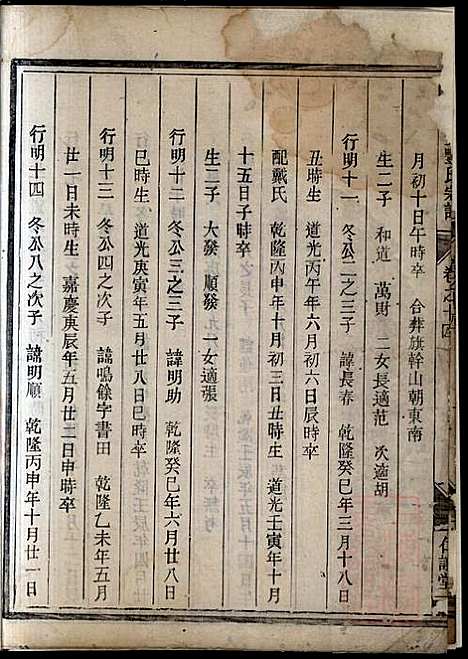 月初十日午時卒 合葬旗幹山朝東南
生二子 和道 萬財 二女長適范 次適胡
行明十一 冬公二之三子 諱長春 乾隆癸巳年三月十八日
丑時生 道光丙午年六月初六日辰時卒
配戴氏 乾隆丙申年十月初三日丑時生 道光壬寅年十月
十五日子時卒
生二子 大發 順發 一女適張
行明十二 冬公三之三子 諱明助 乾隆癸巳年六月廿八日
巳時生 道光庚寅年五月廿八日巳時卒
行明十三 冬公四之次子 諱鳴餘字書田 乾隆乙未年五月
廿一日未時生 嘉慶庚辰年五月廿二日申時卒
行明十四 冬公八之次子 諱明順 乾隆丙申年十月廿一日